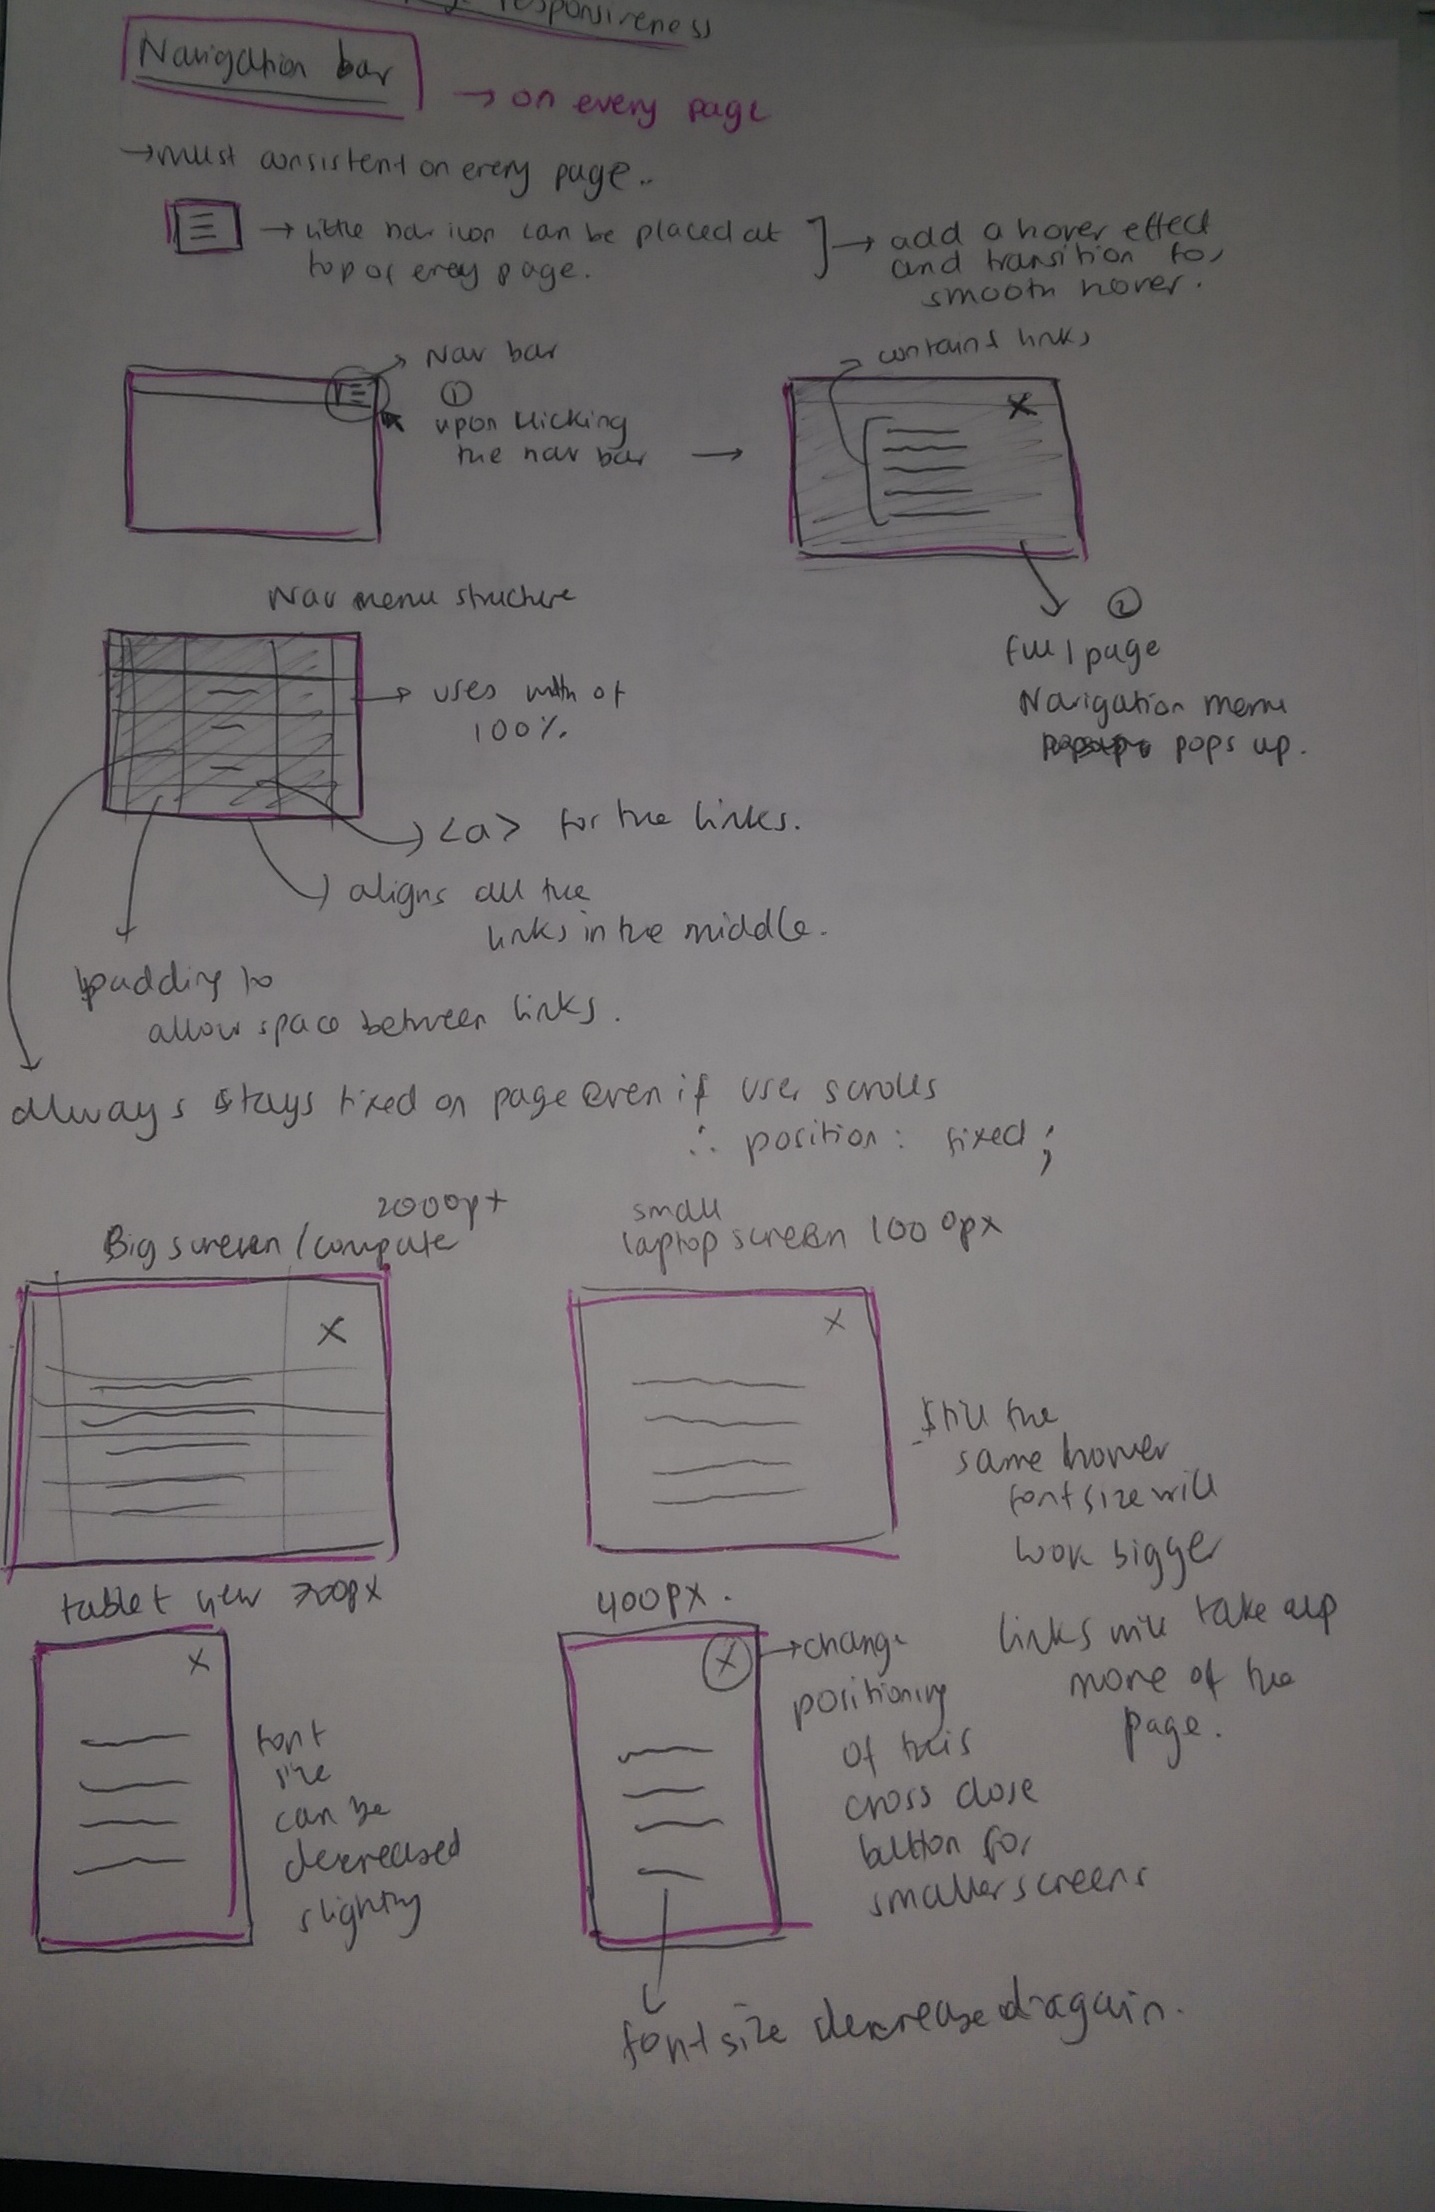 responsiveness
Navigation bar
→ on every page
→ must consistent on every page..
→ little nav icon can be placed at
top of every page.
→ add a hover effect
and transition for
smooth hover.
→ Nav bar
①
upon clicking
the nav bar →
contains links
X
②
full page
Navigation menu
pops up.
Nav menu structure
→ uses width of
100%.
<a> for the links.
aligns all the
links in the middle.
padding to
allow space between links.
always stays fixed on page even if user scrolls
∴ position: fixed;
Big screen / compute
X
small
laptop screen 1000px
X
still the
same however
font size will
look bigger
links will take up
more of the
page.
tablet view 700px
X
font
size
can be
decreased
slightly
400px.
X
→ change
positioning
of this
cross close
button for
smaller screens
font size decreased again.